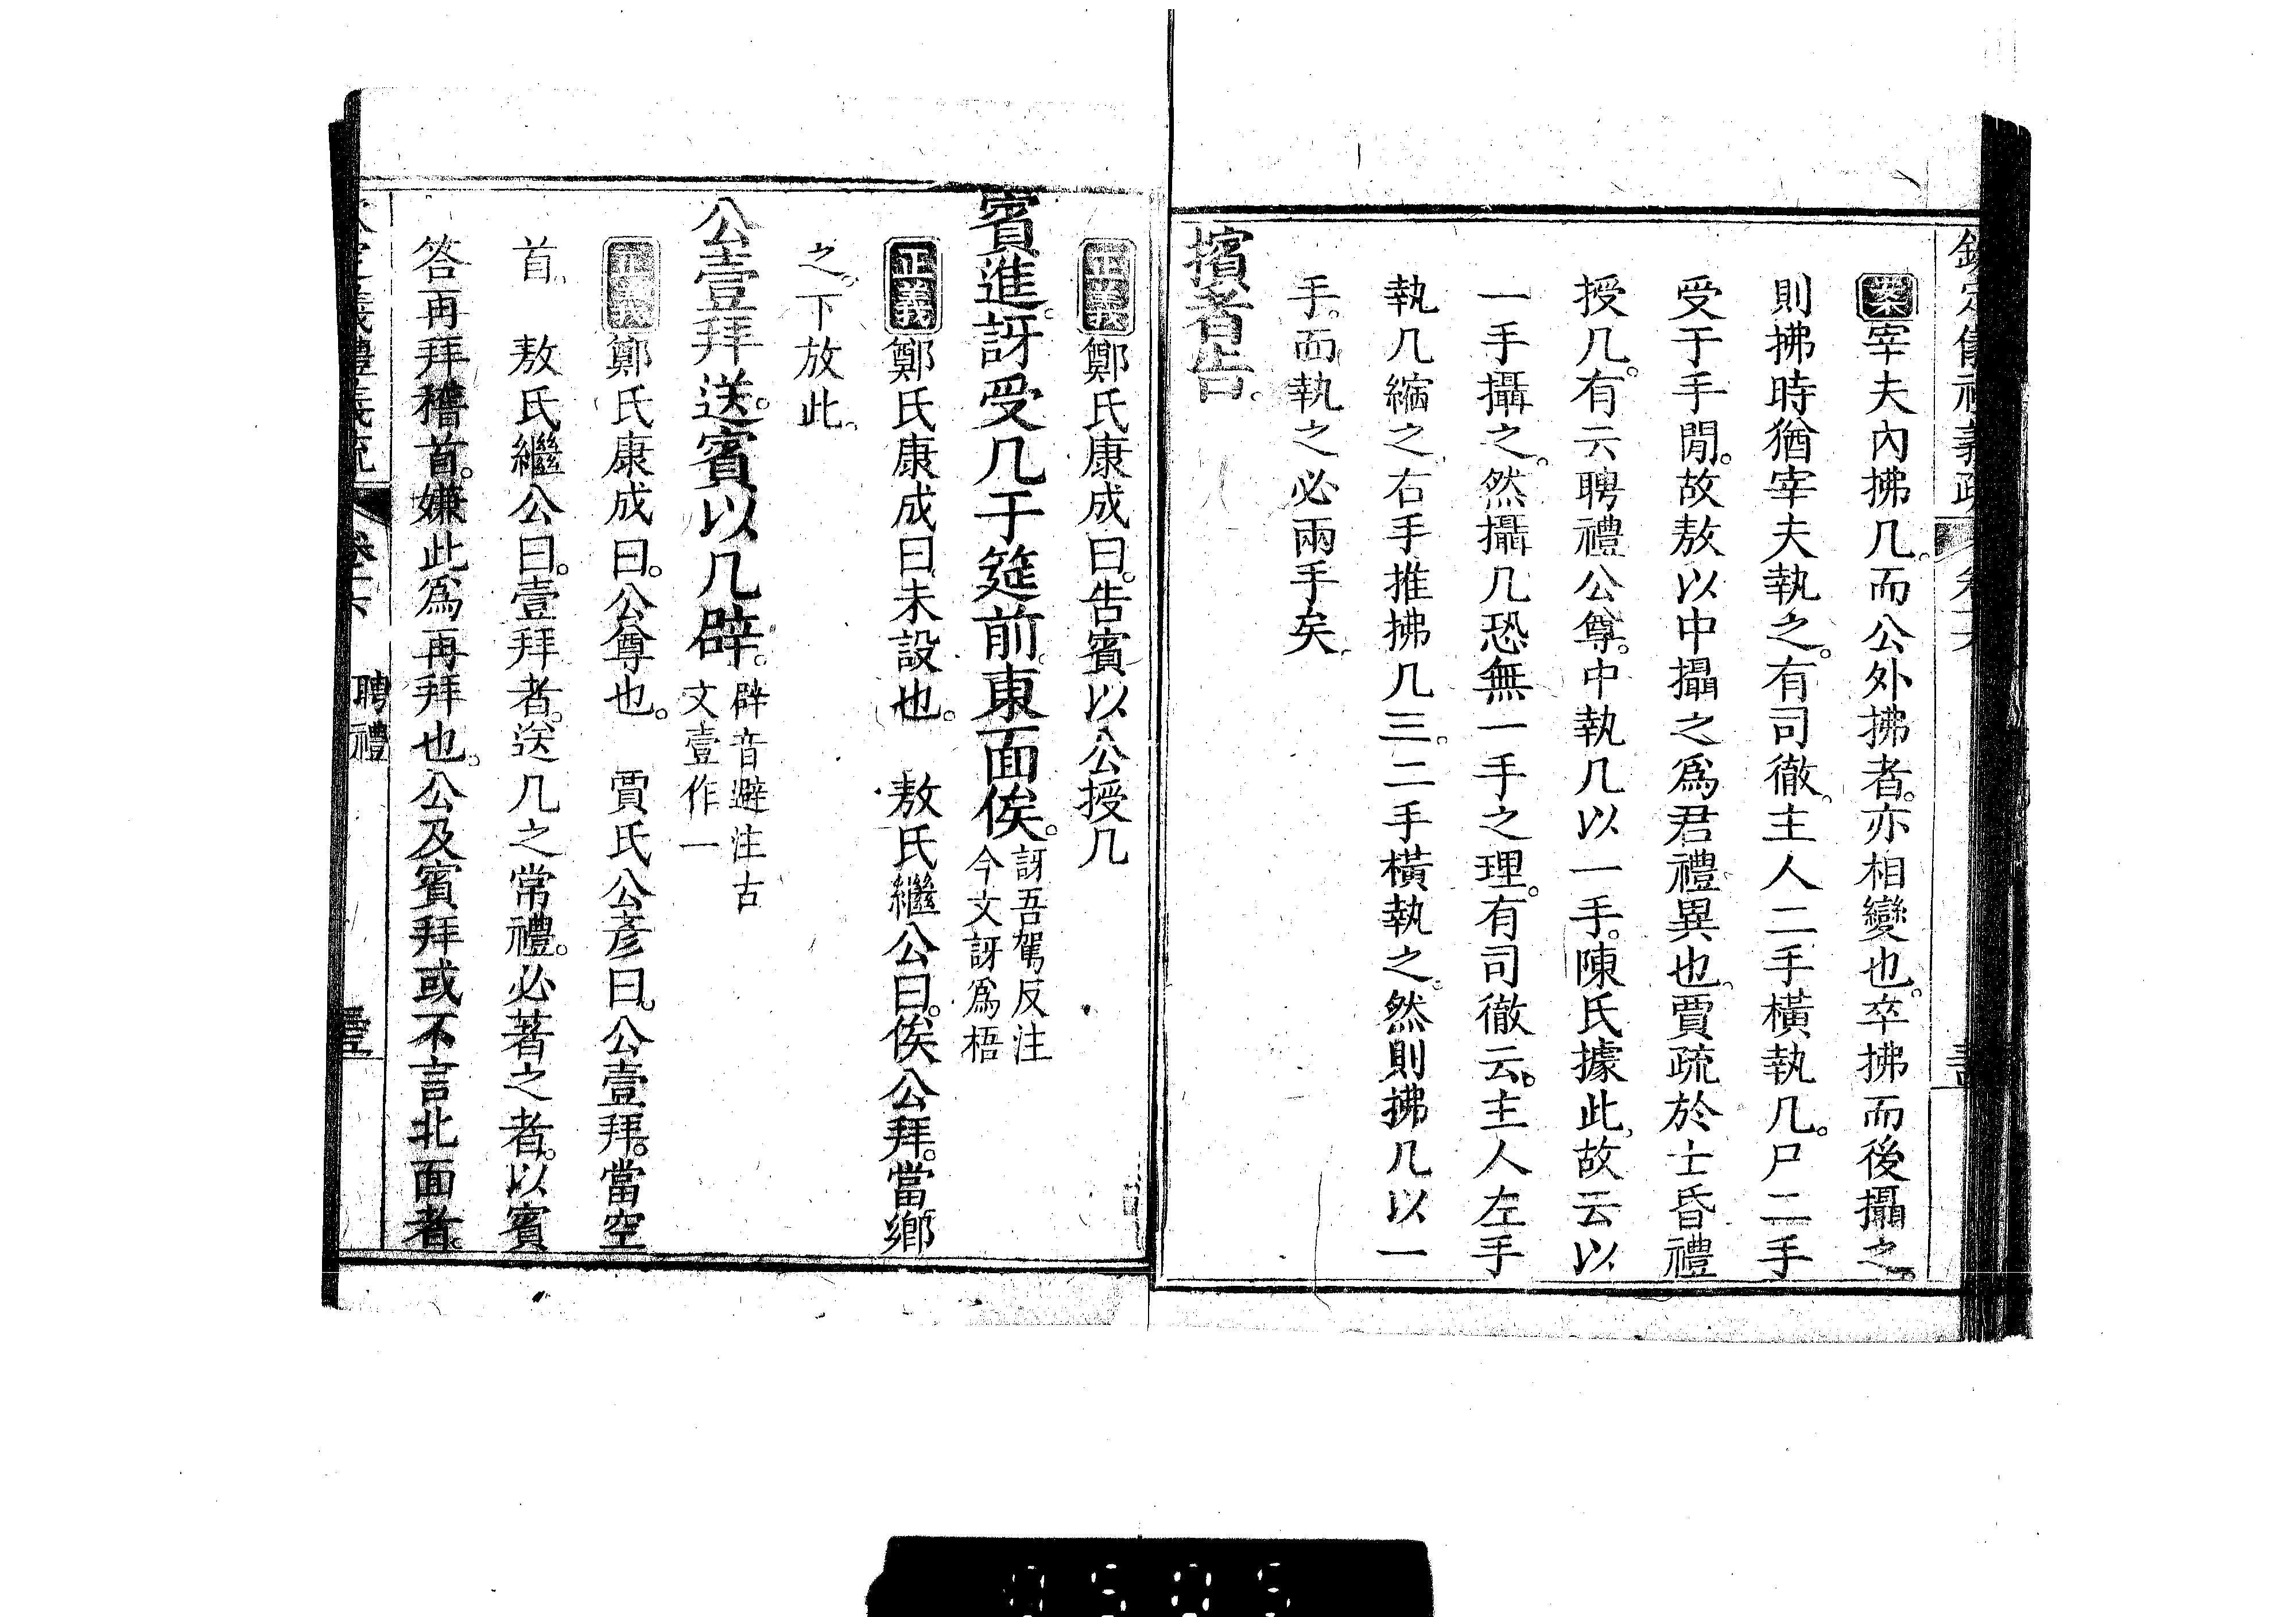 欽定儀禮義疏 卷十六
案宰夫內拂几。而公外拂者。亦相變也。卒拂而後攝之。
則拂時猶宰夫執之。有司徹。主人二手橫執几。尸二手
受于手閒。故敖以中攝之為君禮異也。賈疏於士昏禮
授几。有云聘禮公尊。中執几以一手。陳氏據此。故云以
一手攝之。然攝几恐無一手之理。有司徹云。主人左手
執几縮之。右手推拂几三。二手橫執之。然則拂几以一
手。而執之必兩手矣。
擯者告。
正義鄭氏康成曰。告賓以公授几
賓進。訝受几于筵前。東面俟。訝吾駕反注
今文訝為梧
正義鄭氏康成曰。未設也。 敖氏繼公曰。俟公拜。當鄉
之。下放此。
公壹拜送。賓以几辟。辟音避注古
文壹作一
正義鄭氏康成曰。公尊也。 賈氏公彥曰。公壹拜。當空
首。 敖氏繼公曰。壹拜者。送几之常禮。必著之者。以賓
答再拜稽首。嫌此為再拜也。公及賓拜或不言北面者。
聘禮